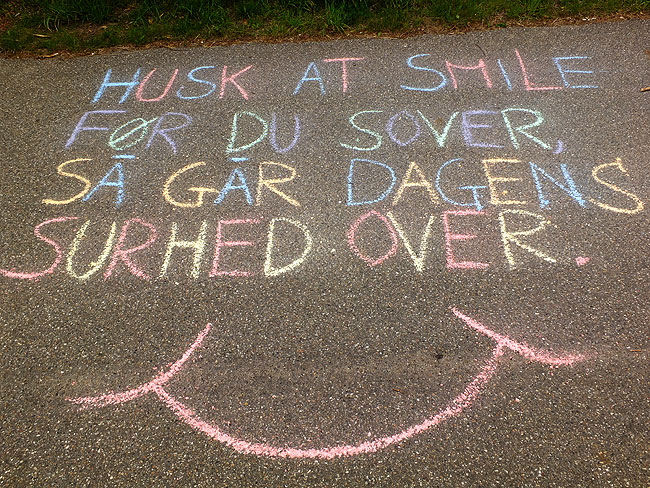 HUSK AT SMILE
FØR DU SOVER,
SÅ GÅR DAGENS
SURHED OVER.